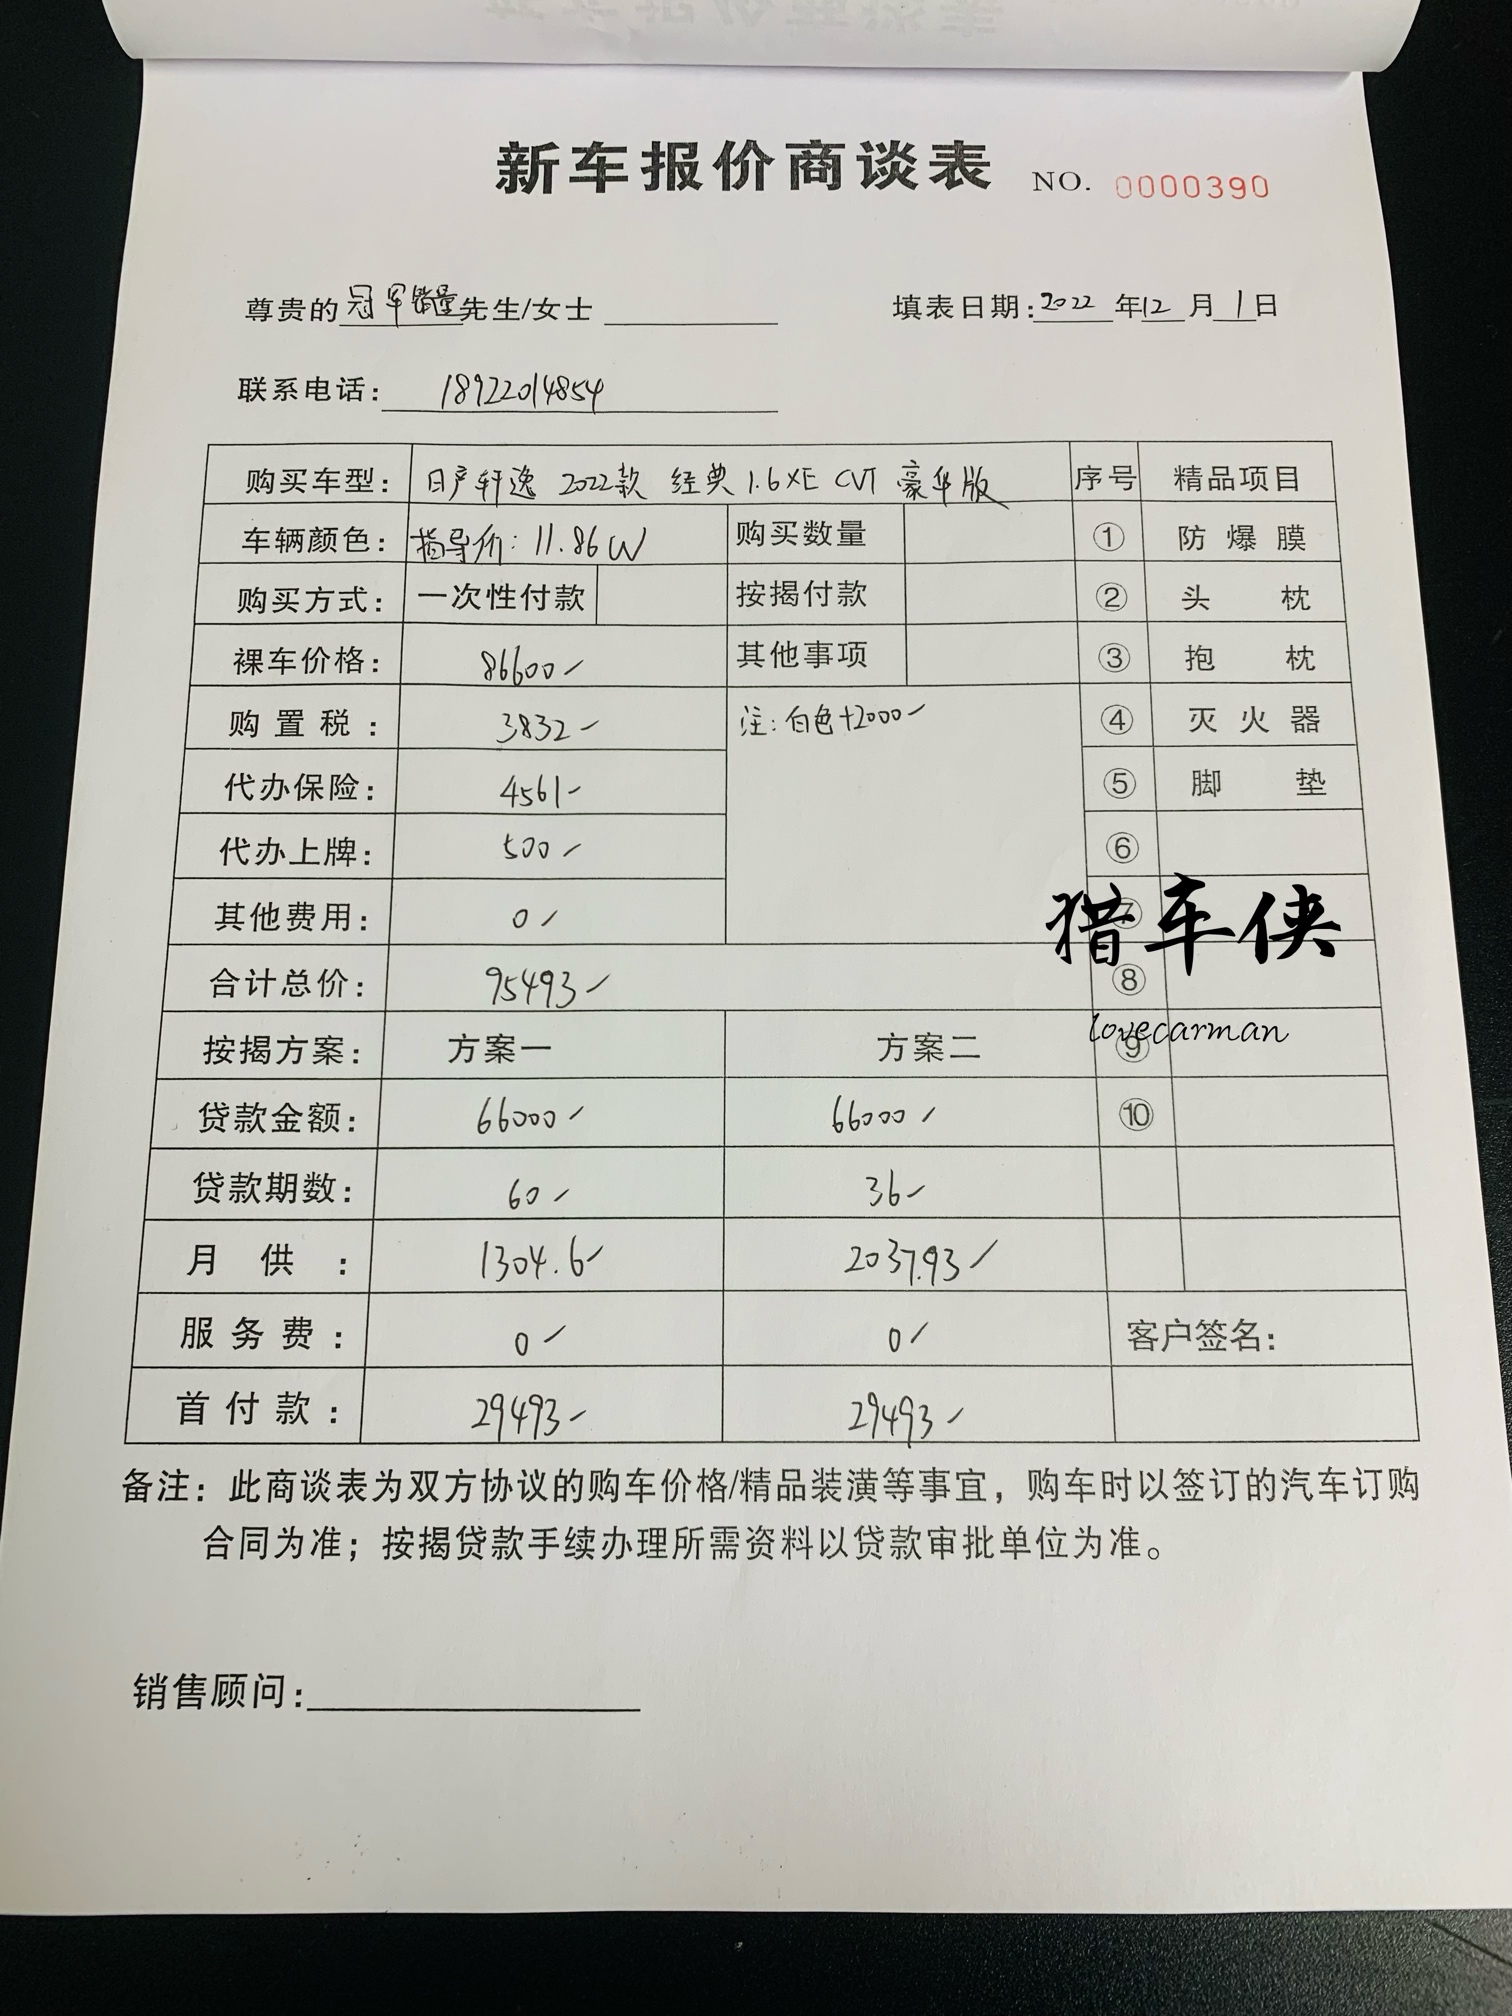 新车报价商谈表 NO. 0000390
尊贵的冠军销量先生/女士 填表日期:2022年12月1日
联系电话: 18922014854
购买车型: 日产轩逸 2022款 经典 1.6XE CVT 豪华版 序号 精品项目
车辆颜色: 指导价: 11.86W 购买数量 ① 防爆膜
购买方式: 一次性付款 按揭付款 ② 头枕
裸车价格: 86600 其他事项 ③ 抱枕
购置税: 3832 注:白色+2000 ④ 灭火器
代办保险: 4561 ⑤ 脚垫
代办上牌: 500 ⑥
其他费用: 0 ⑦
猎车侠
合计总价: 95493 ⑧
lovecarman
按揭方案: 方案一 方案二 ⑨
贷款金额: 66000 66000 ⑩
贷款期数: 60 36
月供: 1304.6 2037.93
服务费: 0 0 客户签名:
首付款: 29493 29493
备注: 此商谈表为双方协议的购车价格/精品装潢等事宜，购车时以签订的汽车订购
合同为准；按揭贷款手续办理所需资料以贷款审批单位为准。
销售顾问: